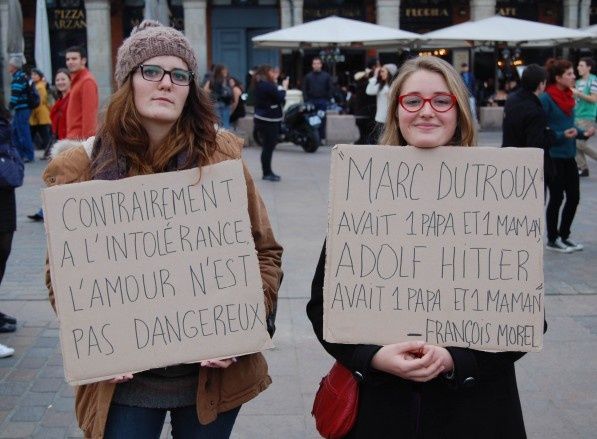 PIZZA
FLORIDA
CONTRAIREMENT
A L'INTOLÉRANCE,
L'AMOUR N'EST
PAS DANGEREUX
"MARC DUTROUX
AVAIT 1 PAPA ET 1 MAMAN,
ADOLF HITLER
AVAIT 1 PAPA ET 1 MAMAN"
— FRANÇOIS MOREL